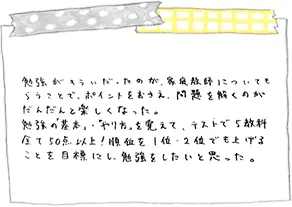 勉強がきらいだったのが、家庭教師についても
らうことで、ポイントをおさえ、問題を解くのが
だんだんと楽しくなった。
勉強の「基本」・「やり方」を覚えて、テストで5教科
全て50点以上!順位を1位・2位でも上げる
ことを目標にし、勉強をしたいと思った。